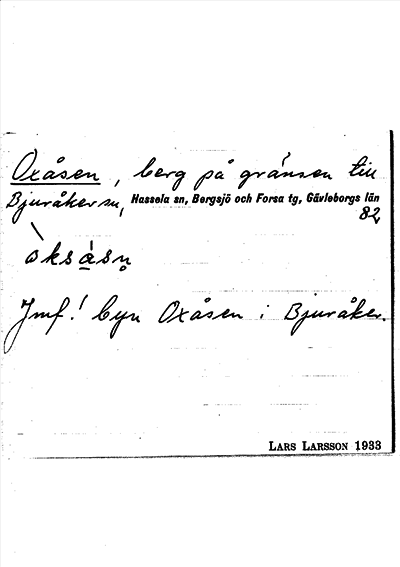 Oxåsen, berg på gränsen till
Bjuråker sn, Hassela sn, Bergsjö och Forsa tg, Gävleborgs län
82
òksàsn̥
Jmf! byn Oxåsen i Bjuråker.
LARS LARSSON 1933